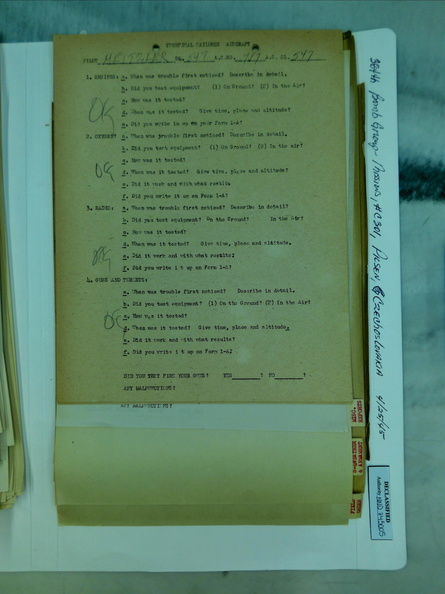 TECHNICAL FAILURES AIRCRAFT
PILOT MEITZLER NO. 547 A.C. NO. 547
1. ENGINE: a. When was trouble first noticed? Describe in detail.
b. Did you test equipment? (1) On Ground? (2) In the Air?
c. How was it tested?
OK
d. When was it tested? Give time, place and altitude?
e. Did you write it up on your Form 1-A?
2. OXYGEN: a. When was trouble first noticed? Describe in detail.
b. Did you test equipment? (1) On Ground? (2) In the air?
c. How was it tested?
OK
d. When was it tested? Give time, place and altitude?
e. Did it work and with what results
f. Did you write it up on Form 1-A?
3. RADIO: a. When was trouble first noticed? Describe in detail?
b. Did you test equipment? On the Ground? In the Air?
c. How was it tested?
d. When was it tested? Give time, place and altitude.
OK
e. Did it work and with what results?
f. Did you write it up on Form 1-A?
4. GUNS AND TURRETS:
a. When was trouble first noticed? Describe in detail.
b. Did you test equipment? (1) On the Ground? (2) In the Air?
c. How was it tested?
OK
d. When was it tested? Give time, place and altitude.
e. Did it work and with what results?
f. Did you write it up on Form 1-A?
DID YOU TEST FIRE YOUR GUNS? YES ? NO ?
ANY MALFUNCTIONS?
ANY MALFUNCTIONS?
384th Bomb Group- Mission #301, Pilsen, Czechoslovakia 4/25/45
DECLASSIFIED
Authority NND 745005